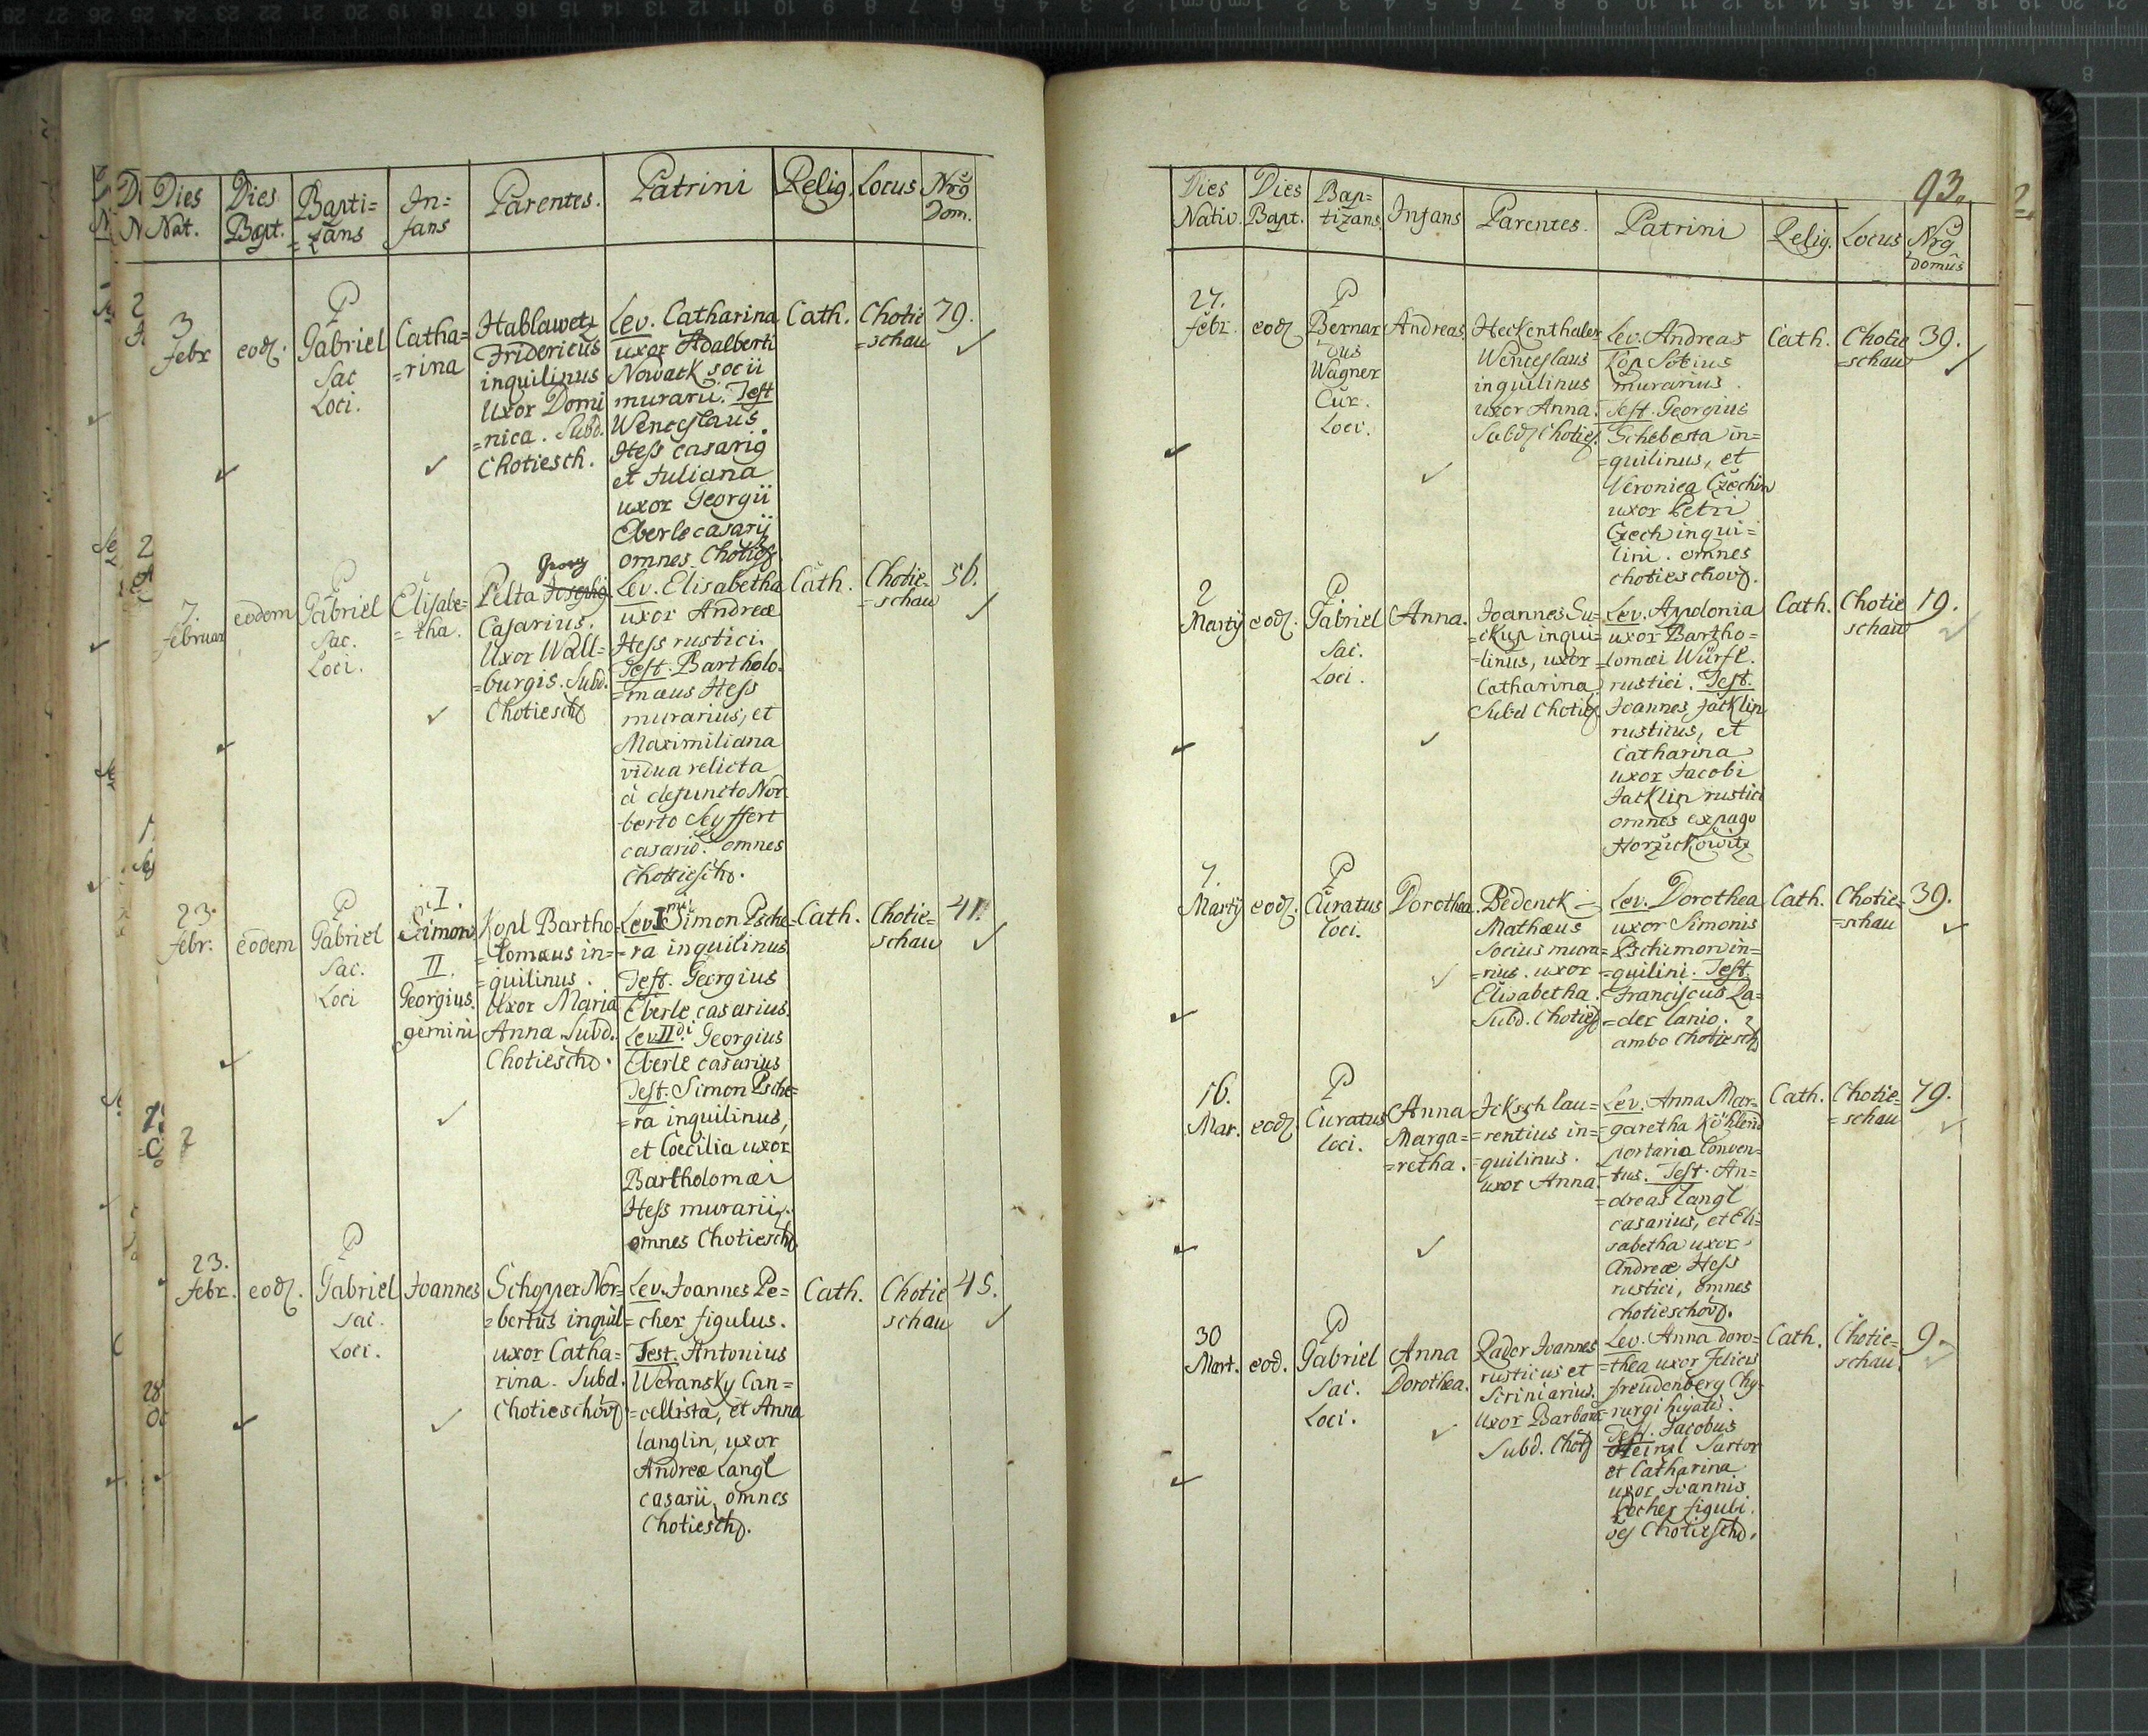 Dies Nat.
Dies Bapt.
Bapti=
=zans
In=
fans
Parentes.
Patrini
Relig.
Locus
Nrg
Dom.
3
febr
eod.
P
Gabriel
Sac
Loci.
Catha=
=rina
Hablawetz
Fridericus
inquilinus
Uxor Domi
=nica. Subd.
Chotiesch.
Lev. Catharina
uxor Adalberti
Nowack socii
murarii. Test
Wenceslaus
Hess casarig
et Juliana
uxor Georgii
Eberle casarij
omnes Chotiesch
Cath.
Chotie
=schau
79.
7.
februar
eodem
P
Gabriel
Sac.
Loci.
Elisabe=
=tha.
Georg
Pelta Josephg
Casarius.
Uxor Wall=
=burgis. Subd.
Chotiesch
Lev. Elisabetha
uxor Andreæ
Hess rustici.
Test. Bartholo=
=mæus Hess
murarius, et
Maximiliana
vidua relicta
à defuncto Nor
berto Seyffert
casario. omnes
Chotiesch.
Cath.
Chotie=
=schau
56.
23.
febr.
eodem
P
Gabriel
Sac.
Loci
I.
Simon
II.
Georgius.
gemini
Kopl Bartho=
=lomæus in=
=quilinus.
Uxor Maria
Anna. Subd.
Chotiesch.
Lev. I mi Simon Psche=
=ra inquilinus.
Test. Georgius
Eberle casarius.
Lev. II di Georgius
Eberle casarius
Test. Simon Psche=
=ra inquilinus,
et Coecilia uxor
Bartholomæi
Hess murarii.
omnes Chotiesch
Cath.
Chotie=
schau
41.
23.
febr.
eod.
P
Gabriel
Sac.
Loci.
Joannes
Schopper Nor=
=bertus inquil
uxor Catha=
rina. Subd.
Chotieschov
Lev. Joannes Pe=
=cher figulus.
Test. Antonius
Weransky Can=
=cellista, et Anna
Langlin, uxor
Andreæ Langl
casarii, omnes
Chotiesch.
Cath.
Chotie
schau
45.
93.
Dies
Nativ.
Dies
Bapt.
Bap=
tizans.
Infans
Parentes.
Patrini
Relig.
Locus
Nrg
Domûs
27.
febr.
eod
P
Bernar
dus
Wagner
Cur.
Loci.
Andreas
Heckenthaler
Wenceslaus
inquilinus
uxor Anna.
Subd Choties.
Lev. Andreas
Kopl Socius
murarius.
Test. Georgius
Schebesta in=
=quilinus, et
Veronica Czechin
uxor Petri
Czech inqui=
lini. omnes
chotieschov.
Cath.
Chotie
=schau
39.
2
Martij
eod.
P
Gabriel
Sac.
Loci.
Anna.
Joannes Su=
=ckup inqui=
=linus, uxor
Catharina
Subd Choties
Lev. Apolonia
uxor Bartho=
=lomæi Würfl.
rustici. Test.
Joannes Jacklin
rusticus, et
Catharina
uxor Jacobi
Jacklin rustici
omnes ex pago
Horzickowitz
Cath.
Chotie
schau
19.
7.
Martij
eod.
P
Curatus
loci.
Dorothea.
Bedenck
Mathæus
Socius mura=
=rius. uxor
Elisabetha.
Subd. Choties
Lev. Dorothea
uxor Simonis
Pschernon in=
=quilini. Test.
Franciscus Ra=
=der lanio.
ambo Chotiesch
Cath.
Chotie=
=schau
39.
16.
Mar.
eod.
P
Curatus
loci.
Anna
Marga=
=retha.
Icksch lau=
=rentius in=
=quilinus.
uxor Anna.
Lev. Anna Mar=
=garetha Köhlerin
portaria Conven=
=tus. Test. An=
=dreas Langl
casarius, et Eli=
sabetha uxor
Andreæ Hess
rustici, omnes
chotieschov.
Cath.
Chotie=
=schau
79.
30
Mart.
eod.
P
Gabriel
Sac.
Loci.
Anna
Dorothea.
Rader Joannes
rusticus et
Scriniarius.
Uxor Barbara
Subd. Chot
Lev. Anna Doro=
=thea uxor Felicis
freudenberg Chy=
=rurgi hujatis.
Test. Jacobus
Heinzl Sartor
et Catharina
uxor Joannis
Pecher figuli.
oēs Chotiesch.
Cath.
Chotie=
schau.
9.